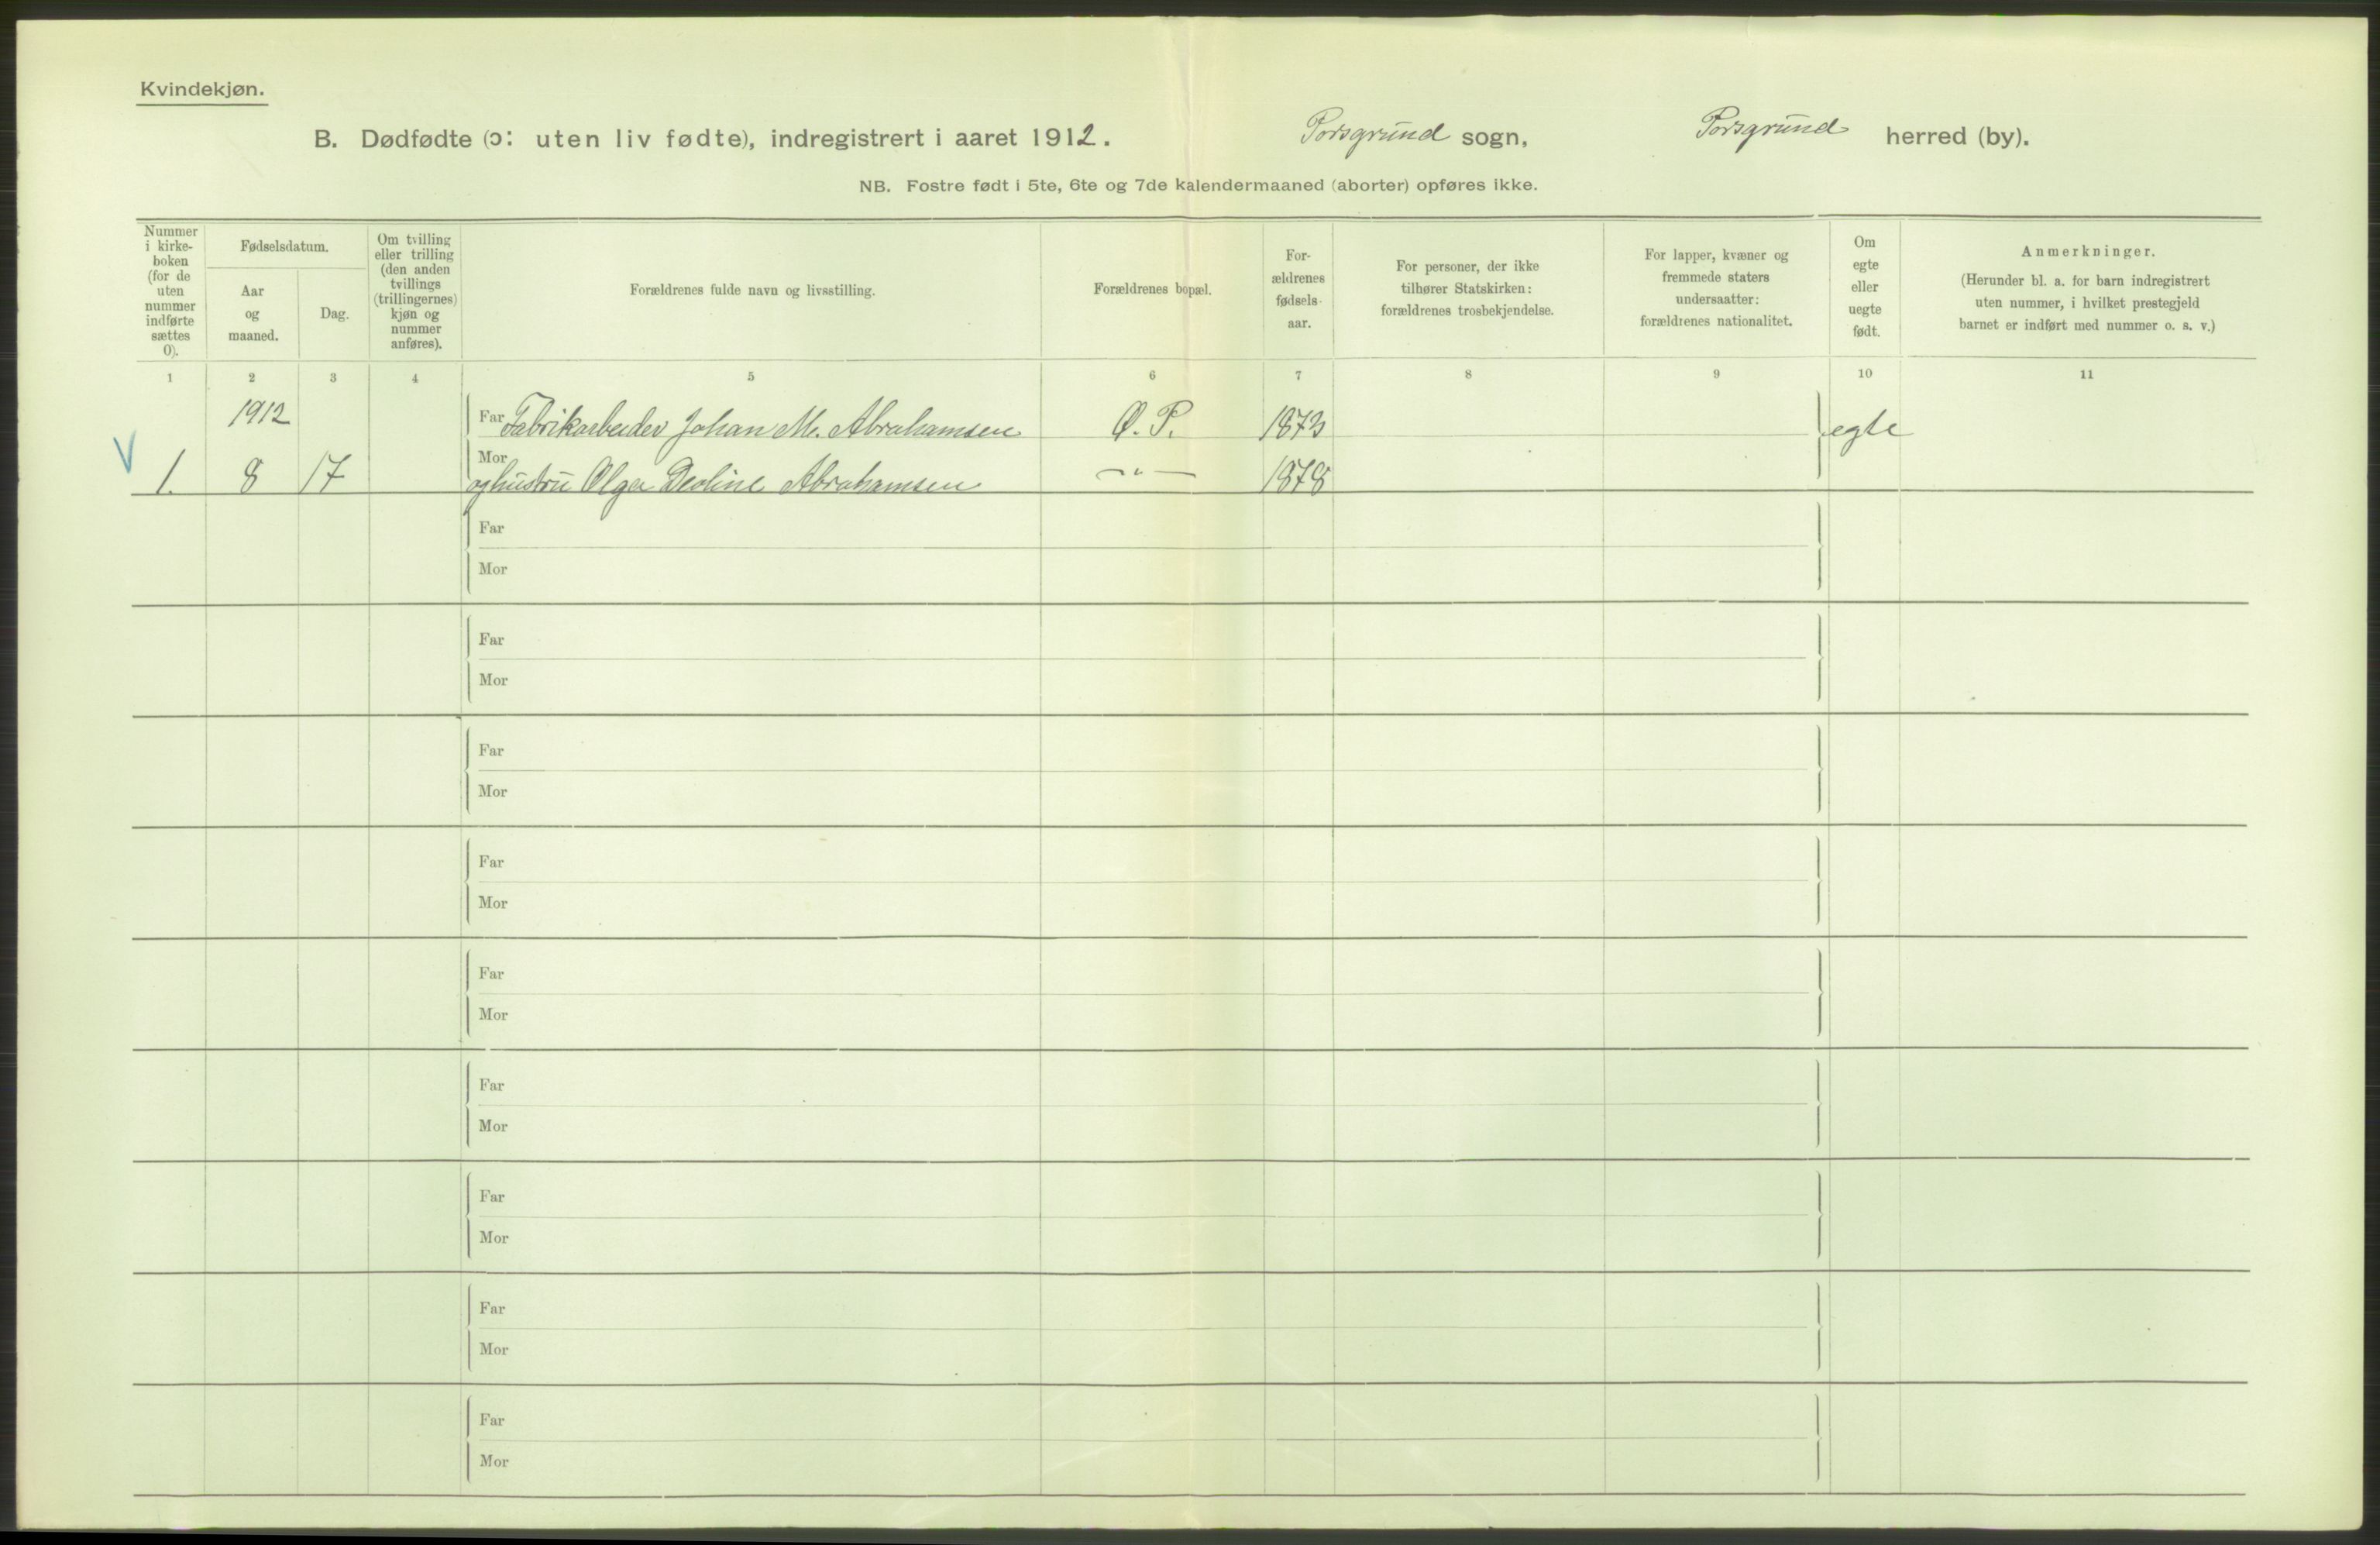 Kvindekjøn.
B. Dødfødte (ɔ: uten liv fødte), indregistrert i aaret 1912. Porsgrund sogn, Porsgrund herred (by).
NB. Fostre født i 5te, 6te og 7de kalendermaaned (aborter) opføres ikke.
Nummer i kirke-boken (for de uten nummer indførte sættes 0).
Fødselsdatum.
Aar og maaned.
Dag.
Om tvilling eller trilling (den anden tvillings (trillingernes) kjøn og nummer anføres).
Forældrenes fulde navn og livsstilling.
Forældrenes bopæl.
For-ældrenes fødsels-aar.
For personer, der ikke tilhører Statskirken: forældrenes trosbekjendelse.
For lapper, kvæner og fremmede staters undersaatter: forældrenes nationalitet.
Om egte eller uegte født.
Anmerkninger.
(Herunder bl. a. for barn indregistrert uten nummer, i hvilket prestegjeld barnet er indført med nummer o. s. v.)
1 2 3 4 5 6 7 8 9 10 11
1912 Far Fabrikarbeider Johan M. Abrahamsen Ø. P. 1873 egte
V 1. 8 17 Mor og hustru Olga Deoline Abrahamsen —"— 1878
Far
Mor
Far
Mor
Far
Mor
Far
Mor
Far
Mor
Far
Mor
Far
Mor
Far
Mor
Far
Mor